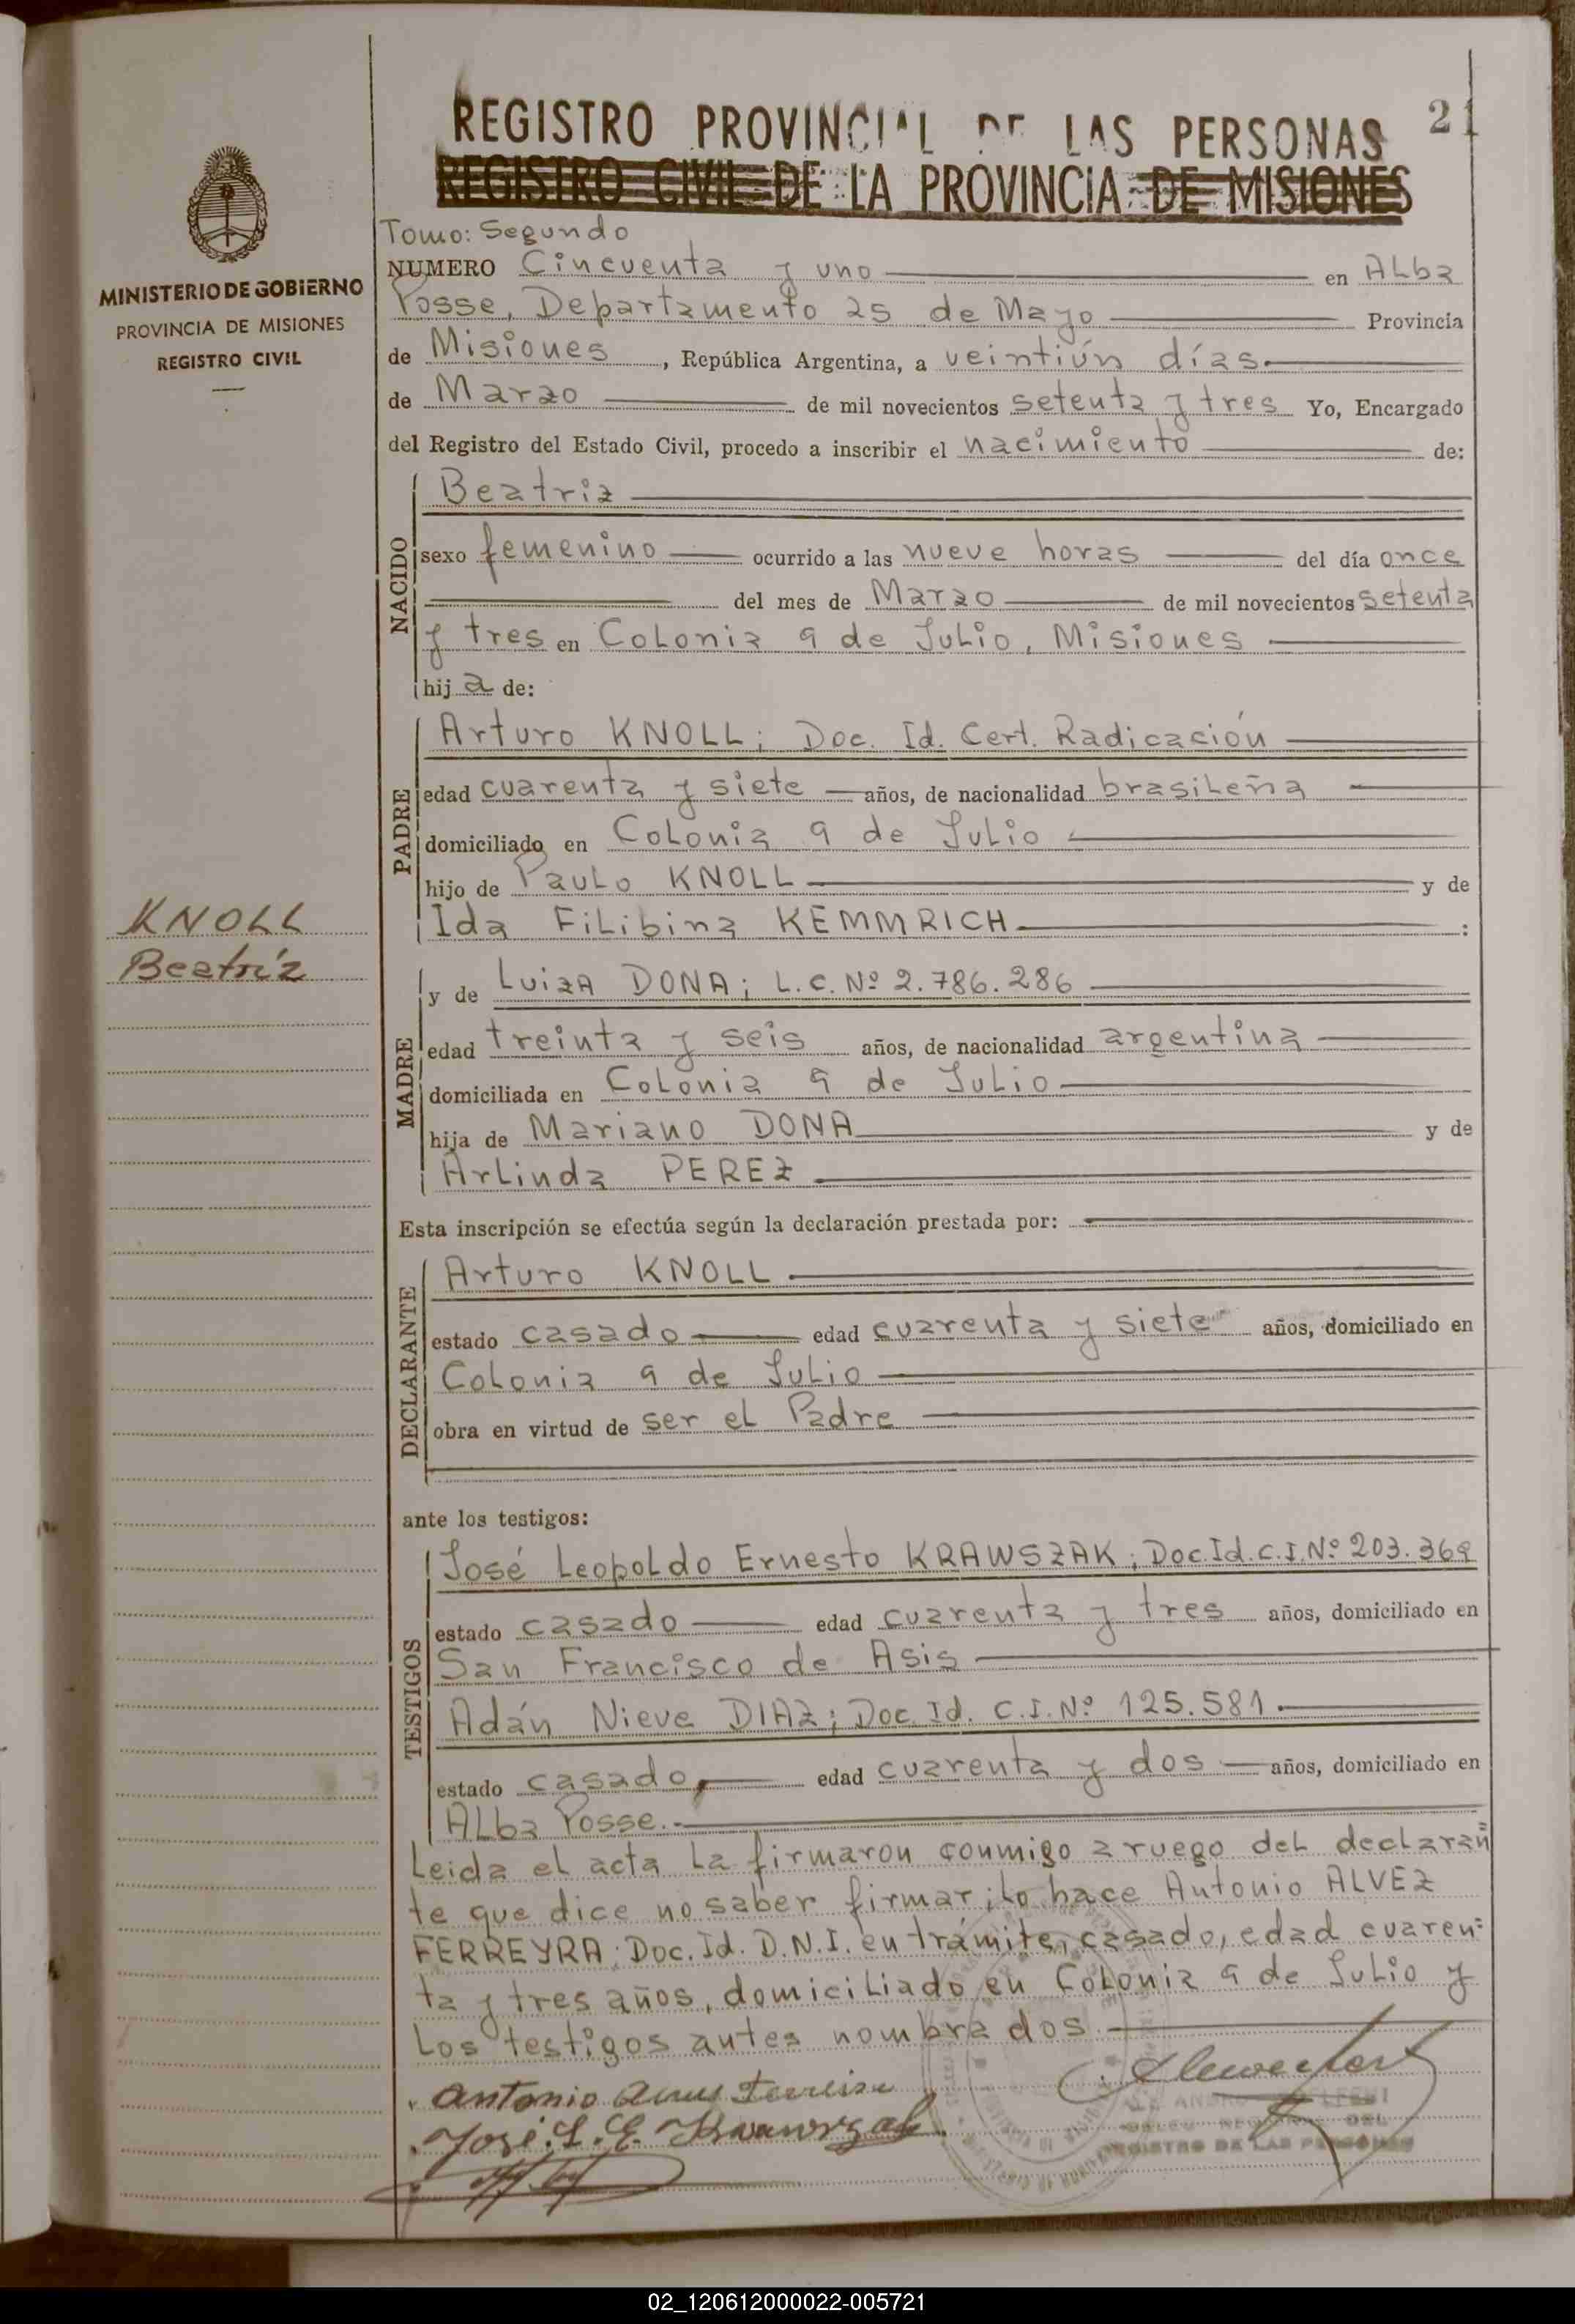 REGISTRO PROVINCIAL DE LAS PERSONAS
21
REGISTRO CIVIL DE LA PROVINCIA DE MISIONES
MINISTERIO DE GOBIERNO
PROVINCIA DE MISIONES
REGISTRO CIVIL
Tomo: Segundo
NUMERO Cincuenta y uno en Alba
Posse, Departamento 25 de Mayo Provincia
de Misiones, República Argentina, a veintiún días.
de Marzo de mil novecientos setenta y tres Yo, Encargado
del Registro del Estado Civil, procedo a inscribir el nacimiento de:
NACIDO
Beatriz
sexo femenino ocurrido a las nueve horas del día once
del mes de Marzo de mil novecientos setenta
y tres en Colonia 9 de Julio, Misiones
hija de:
PADRE
Arturo KNOLL; Doc. Id. Cert. Radicación
edad cuarenta y siete años, de nacionalidad brasileña
domiciliado en Colonia 9 de Julio
hijo de Paulo KNOLL y de
Ida Filibina KEMMRICH :
KNOLL
Beatríz
MADRE
y de Luiza DONA; L.C. Nº 2.786.286
edad treinta y seis años, de nacionalidad argentina
domiciliada en Colonia 9 de Julio
hija de Mariano DONA y de
Arlinda PEREZ
Esta inscripción se efectúa según la declaración prestada por:
DECLARANTE
Arturo KNOLL
estado casado edad cuarenta y siete años, domiciliado en
Colonia 9 de Julio
obra en virtud de ser el Padre
ante los testigos:
TESTIGOS
José Leopoldo Ernesto KRAWSZAK; Doc. Id. C.I. Nº 203.369
estado casado edad cuarenta y tres años, domiciliado en
San Francisco de Asis
Adán Nieve DIAZ; Doc. Id. C.I. Nº 125.581.
estado casado, edad cuarenta y dos años, domiciliado en
Alba Posse.
Leida el acta la firmaron conmigo a ruego del declaran
te que dice no saber firmar; lo hace Antonio ALVEZ
FERREYRA; Doc. Id. D.N.I. en trámite, casado, edad cuaren=
ta y tres años, domiciliado en Colonia 9 de Julio y
los testigos antes nombrados.
Antonio
José. L. E. Krawszak
REGISTRO DE LAS PERSONAS
02_120612000022-005721